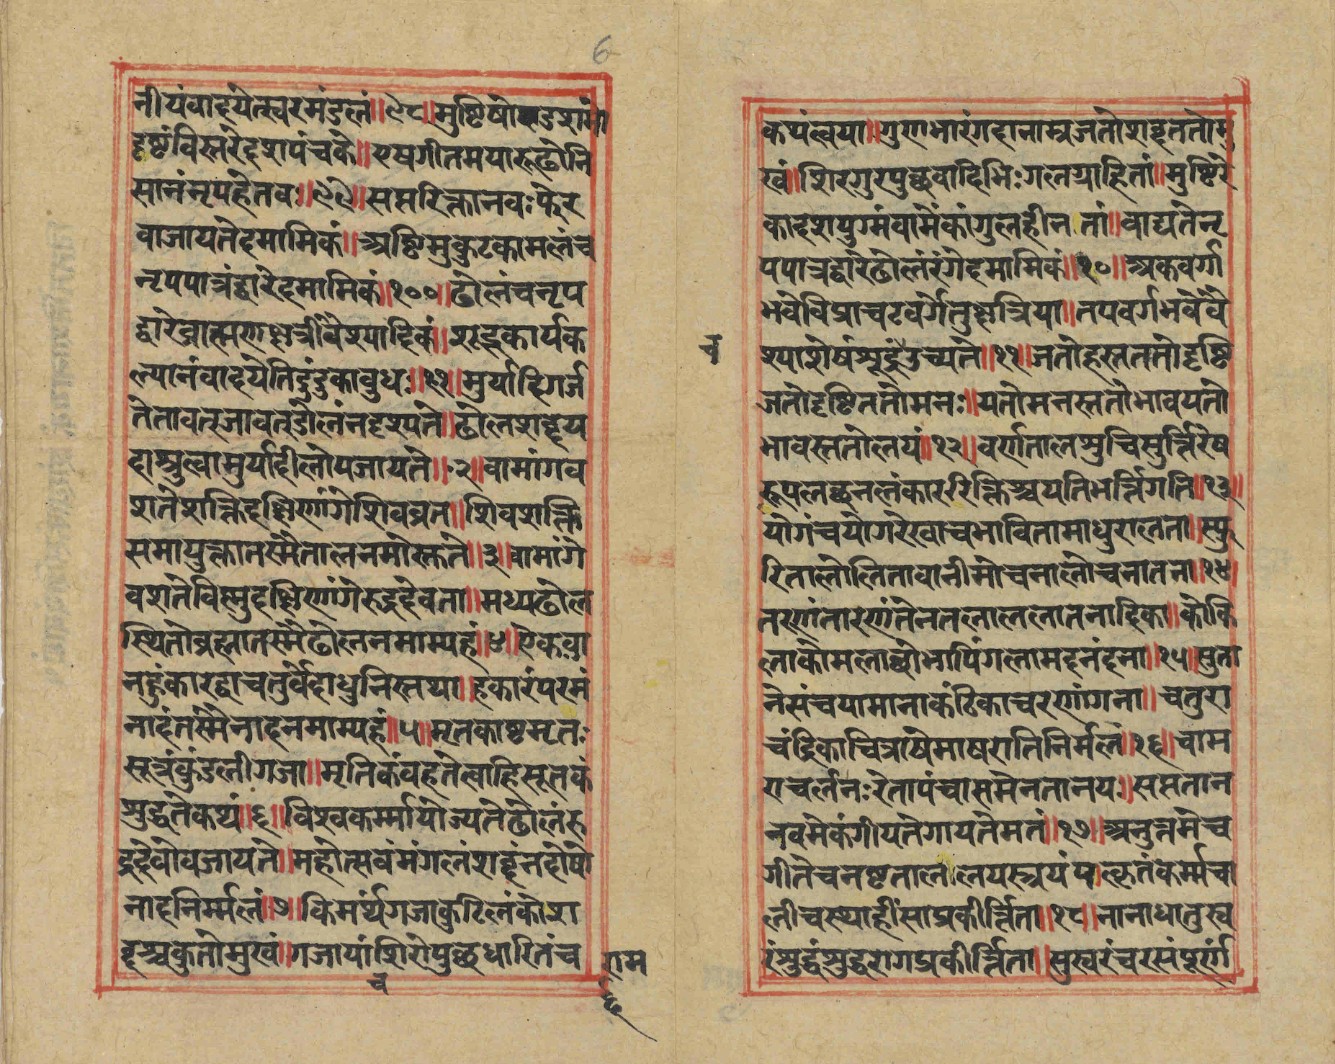 6
नीयंवाद्ययेत्स्वरमंडलं॥९८॥मुष्टिषोषडशामो
दृष्टंविस्तरेद्दशपंचकै॥एषगीतमपारुढोनि
सानंनृपहेतवः॥९९॥सप्तरिक्तानवःफेर
वाजायतेदमामिकं॥अष्टिमुकुटकामलंच
नृपपात्रंद्वारेदमामिकं॥१००॥ढोलंचनृप
द्वारेब्राह्मणक्षत्रीवैश्यादिकं॥शूद्रकार्यक
ल्यानंवाद्ययेतिडुंडुकाबुधः॥१॥मुर्यादिगर्ज
तेतावत्जावत्ढोलंनदृश्यते॥ढोलशब्दय
दाश्रुत्वामुर्यादीलोपजायते॥२॥वामांगव
शतेशक्तिदक्षिणांगेशिवव्रत॥शिवशक्ति
समायुक्तातस्मैतालनमोस्तते॥३॥वामांगे
वशतेविस्मुदक्षिणांगेरुद्रदेवता॥मध्यढोल
स्थितोब्रह्मातस्मैढोलनमाम्यहं॥४॥ऐकवा
नहुंकारद्वाचतुर्वेदाधुनिस्तथा॥दकारंपरमं
नादंतस्मैनादनमाम्यहं॥५॥मृतकाष्टमृतः
सूत्रंकुंडलीगजा॥मृतिकंवहतेत्वाहिसूतकं
शुद्धतेकथं॥६॥विश्वकर्म्मायोज्यतेढोलंरु
द्रदेवोवजायते॥महोत्सवंमंगलंशब्दंनदोषो
नादनिर्म्मलं॥७॥किमर्थंगजाकुटिलंकोशा
दृश्चकुतोमुखं॥गजायांशिरोपुछधारितंच
च
राम
कथंत्वया॥गुणभारंगहानाम्नजतोशब्दततोमु
खं॥शिरगुरपुछवादिभिःगलग्राहितां॥मुष्टिरे
काद्दशयुग्मंवामेकांगुलहीनतां॥वाद्यतेनृ
पपात्रद्वारेढोलंरंगेदमामिकं॥१०॥अकवर्गा
भवेविप्राचटवर्गेतुक्षत्रिया॥तपवर्गभवेवै
च
श्याशेर्षशूद्रंउच्यते॥११॥जतोहस्तततोदृष्टि
जतोदृष्टिततोमनः॥यतोमनस्ततोभावयतो
भावस्ततोलयं॥१२॥वर्णतालशुचिसुर्न्निरेष
रूपलछनलंकाररिक्तिश्चयतिभर्न्निगति॥१३॥
योगंचयोगरेखाचभावितामाधुरालता॥स्फु
रितालोलितावानीमोचनालोचनातना॥१४॥
तरणंतारणंतेनतलाललातनादिका॥कोकि
लाकोमलाछोभापिंगलामदनंदना॥१५॥सुता
नेसंचयामानाकंठिकाचरणांगना॥चतुरा
चंद्रिकाचित्राषेमाषरातिनिर्मलं॥१६॥चाम
राचर्लनःरेतापंचासमेनतानयः॥सप्ततान
नवमेकंगीयतेगायतेमतं॥१७॥अनुत्तमेच
गीतेचनष्टताललयस्त्रयं॥पाल्कृतंकर्म्मचा
लीचस्याहींसाप्रकीर्त्तिता॥१८॥नानाधातुस्व
रंशुद्धंशुद्धरागप्रकीर्त्तिता॥सुस्वरंचरसंपूर्णं